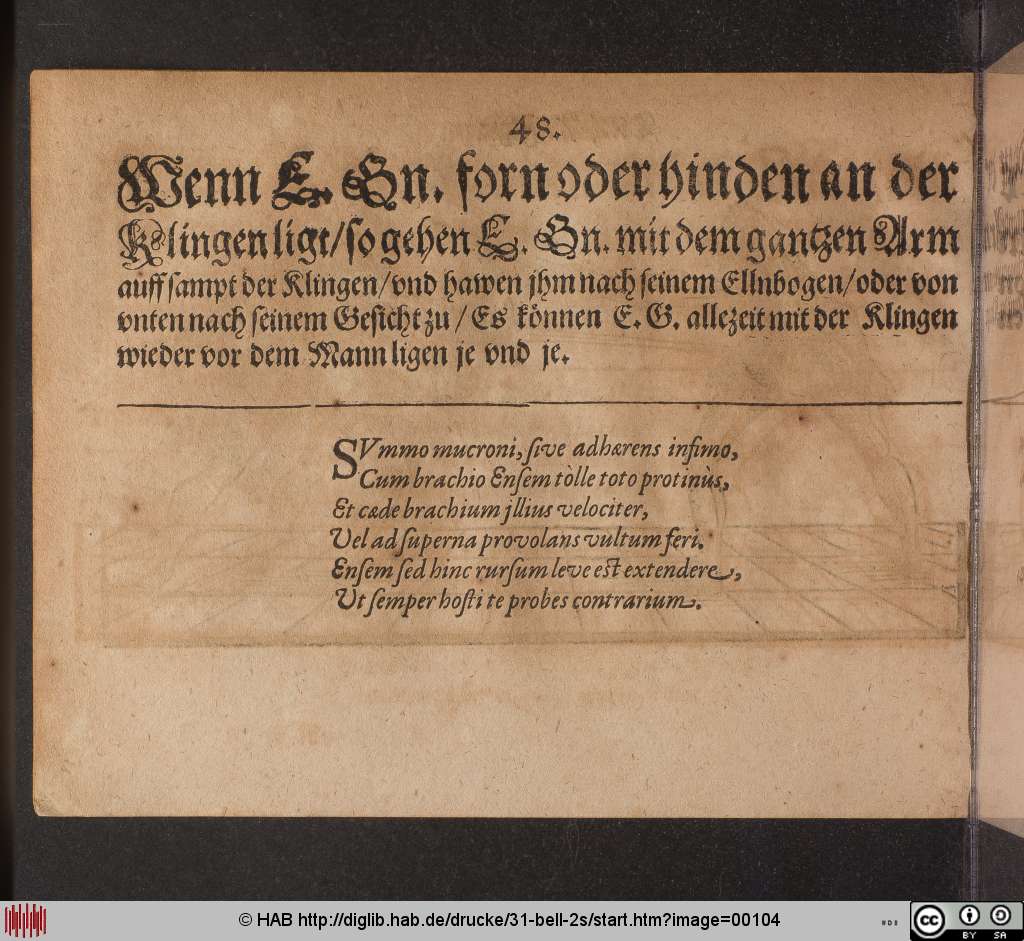 48.
Wenn E. Gn. forn oder hinden an der
Klingen ligt/ so gehen E. Gn. mit dem gantzen Arm
auff sampt der Klingen/ vnd hawen jhm nach seinem Ellnbogen/ oder von
vnten nach seinem Gesicht zu/ Es können E. G. allezeit mit der Klingen
wieder vor dem Mann ligen je vnd je.
SVmmo mucroni, sive adhærens infimo,
Cum brachio Ensem tòlle toto protinùs,
Et cæde brachium jllius velociter,
Vel ad superna provolans vultum feri.
Ensem sed hinc rursum leve est extendere,
Ut semper hosti te probes contrarium.
© HAB http://diglib.hab.de/drucke/31-bell-2s/start.htm?image=00104
cc BY SA